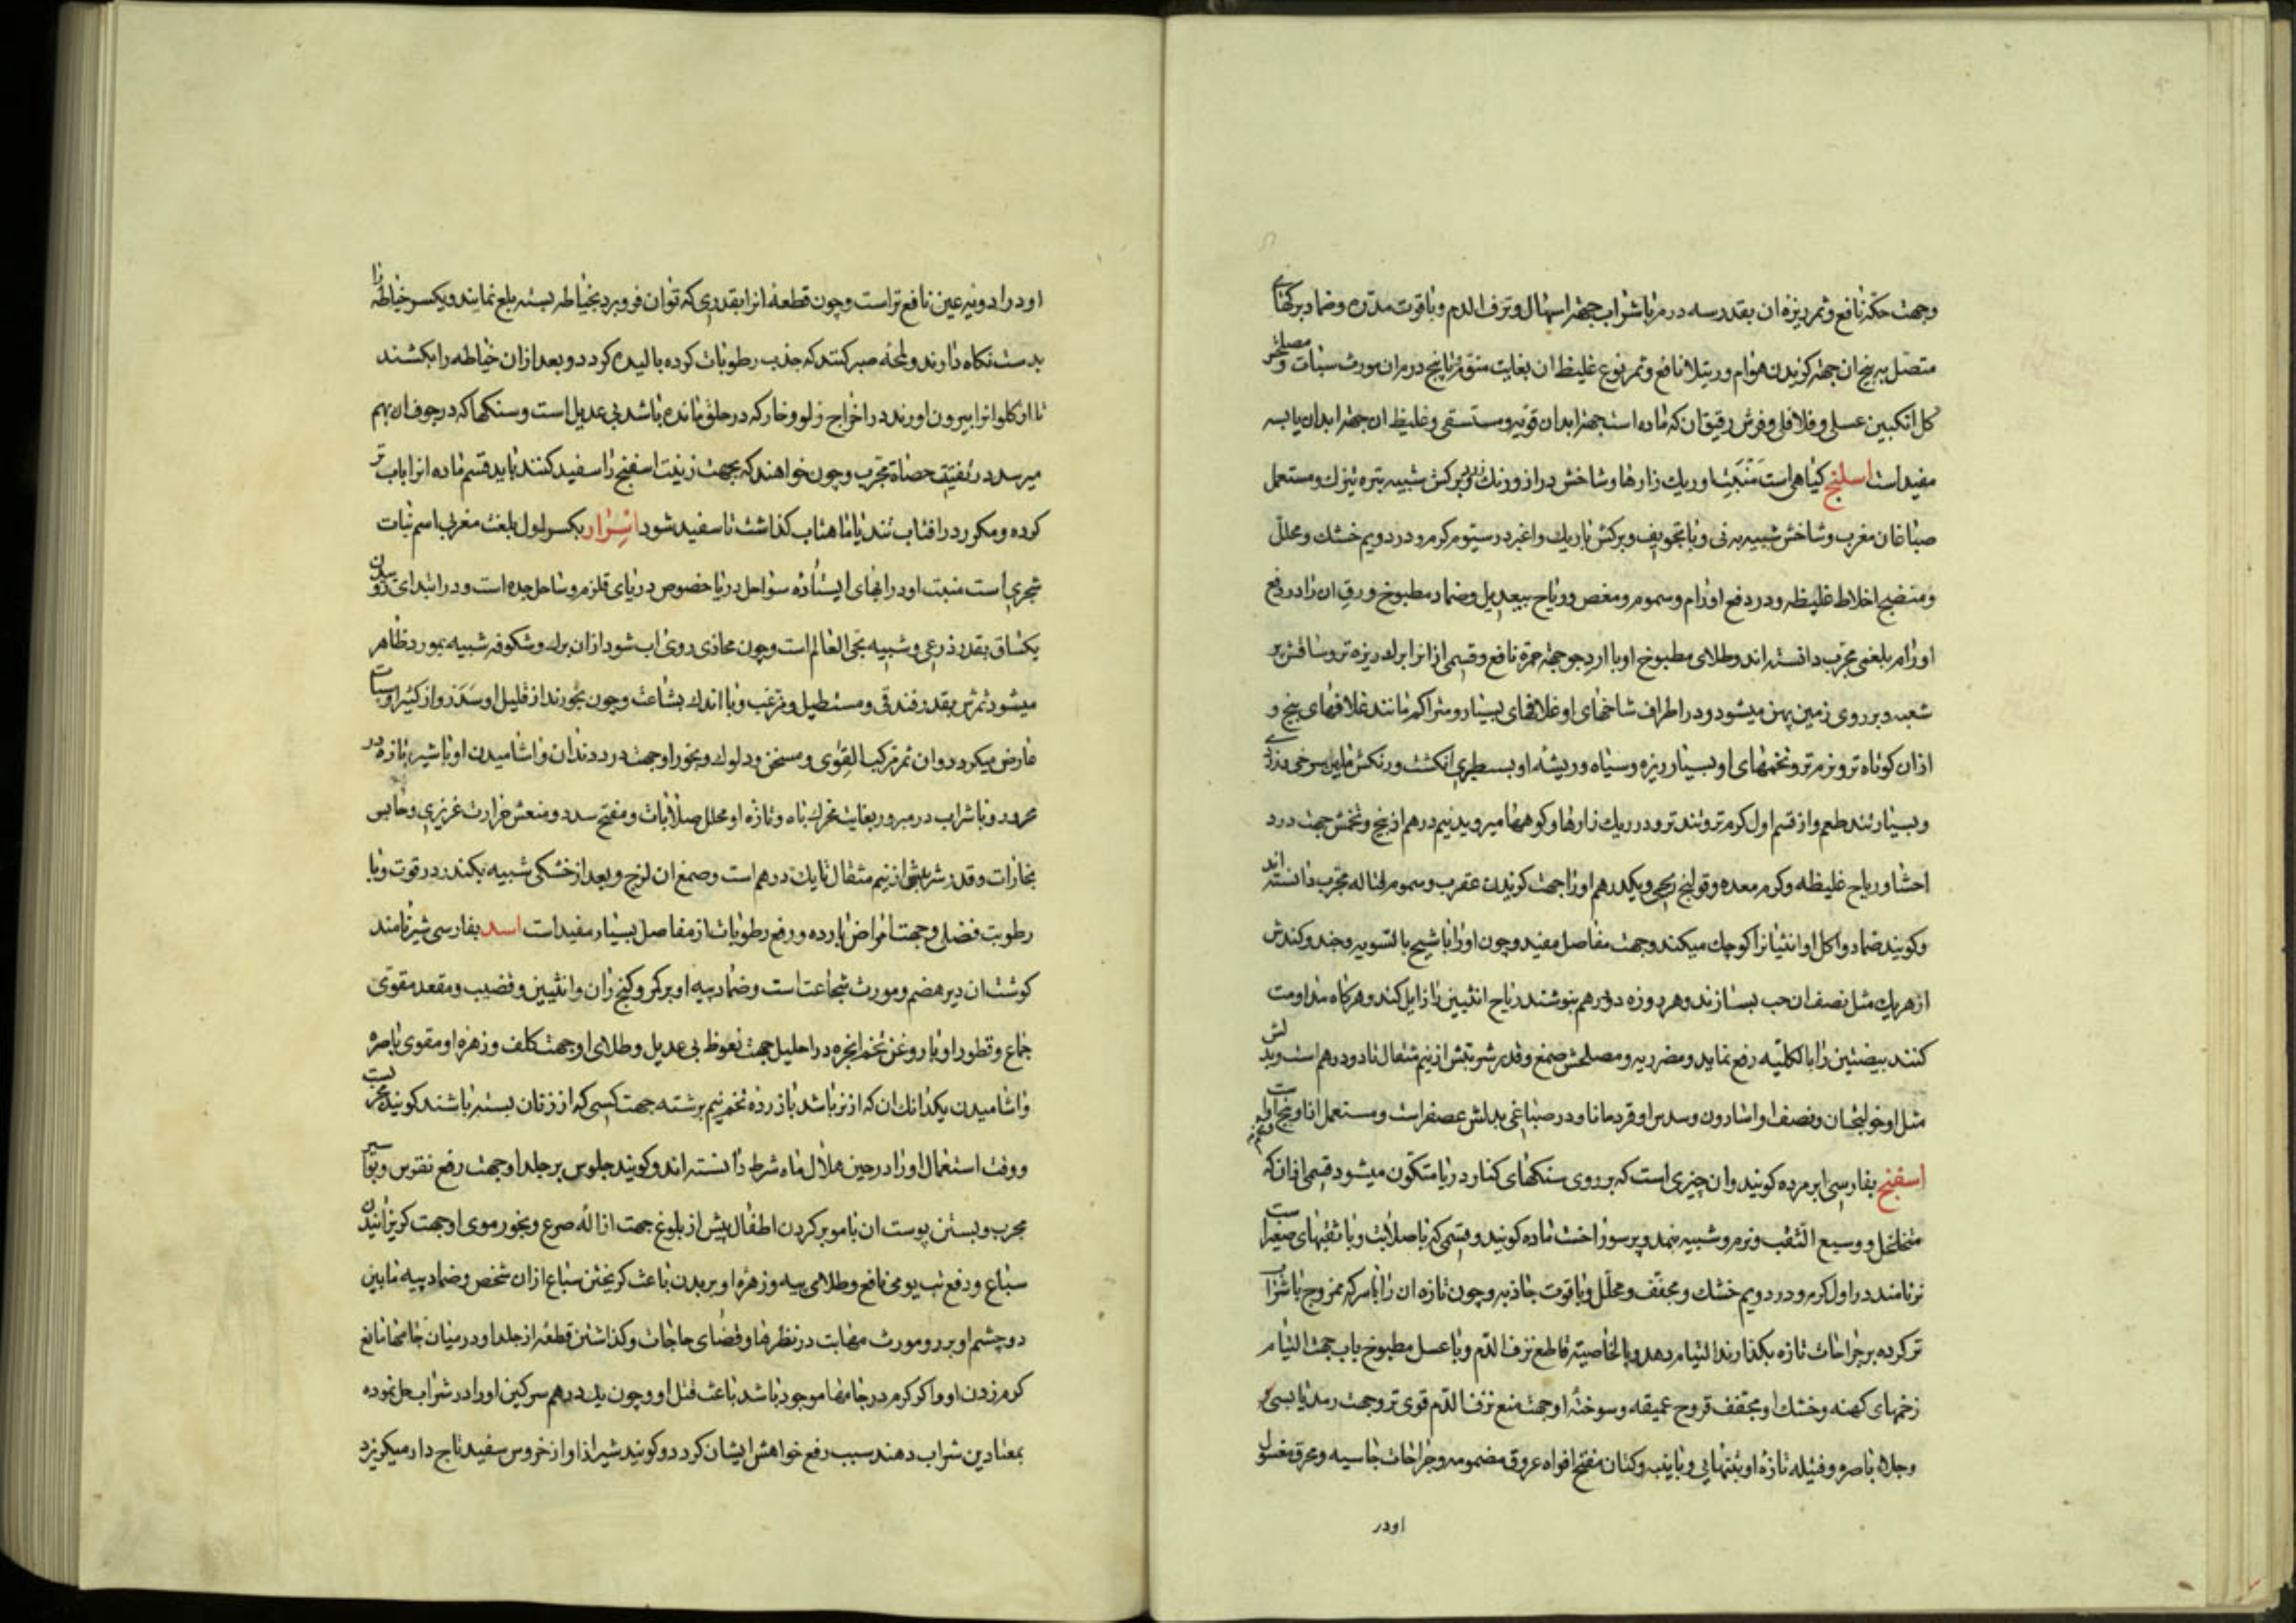 وجهت حکّه نافع و ثمر ریزهٔ ان بقدر سه درم با شراب جهتر اسهال و نزف الدم و با قوت مدرّه و ضماد برکهای
متصل به بیخ ان جهتر کزیدن هوام و رتیلا نافع و ثمر نوع غلیظ ان بغایت منوّم و تا پنج درم ان مورث سبات و مصلحش
کل انکبین عسلی و فلافلی و فرش رقیق ان که ماده است جهتر ابدان قویه و مستسقی و غلیظ ان جهتر ابدان یابسه
مفید است اسلنج کیاهی است منبتش اوریك زارها و شاخش دراز و رنك زرد و برکش شبیه بتره تیزك و مستعمل
صباغان مغرب و شاخش شبیه به نی و با تجویف و برکش باریك و اغبر در سیّوم کرم و در دویم خشك و محلل
و منضج اخلاط غلیظه و در دفع اورام و سموم و مغص و ریاح بیعدیل و ضماد مطبوخ ورق ان را در رفع
اورام بلغمی مجرّب دانسته اند و طلای مطبوخ او با ارد جو جهتر حمرة نافع و قسمی از انرا برك ریزه تر و ساقش پر
شعبه و بر روی زمین پهن میشود و در اطراف شاخهای او غلافهای بسیار و متراکم مانند غلافهای بنج و
ازان کوتاه تر و نرم تر و تخمهای او بسیار ریزه و سیاه و ریشه او بسطبری انکشت و رنکش مایل بسرخی و زردی
و بسیار تند طعم و از قسم اول کرم تر و تند تر و در ریك زارها و کوهها میروید نیم درهم از بیخ و تخمش جهت درد
احشا و ریاح غلیظه و کرم معده و قولنج ریحی و یکدرهم او را جهت کزیدن عقرب و سموم قتاله مجرّب دانسته اند
و کویند ضماد و اکل او انثیانرا کوچك میکند و جهت مفاصل مفید و چون او را با شیح بالسویه و جند و کندش
از هر یك مثل نصف ان حب بسازند و هر روزه دو درهم بنوشند ریاح انثیین را زایل کند و هرکاه مداومت
کنند بیضتین را بالکلیّه رفع نماید و مضر ریه و مصلحش صمغ و قدر شربتش از نیم مثقال تا دو درهم است و بدلش
مثل او خولنجان و نصف او اسارون و سدس او قردمانا و در صباغی بدلش عصفر است و مستعمل از او بیخ او است و تخم
اسفنج بفارسی ابر مرده کویند و ان چیزی است که بر روی سنکهای کنار دریا متکّون میشود قسمی از ان که
متخلخل و وسیع الثقب و نرم و شبیه بنمد و پر سوراخست ماده کویند و قسمی که با صلابت و با ثقبهای صغیر است
نر نامند در اول کرم و در دویم خشك و مجفّف و محلّل و با قوت جاذبه و چون تازه ان را با سرکه ممزوج با شراب
تر کرده بر جراحات تازه بکذارند التیام دهد و بالخاصیّه قاطع نزف الدّم و با عسل مطبوخ باب جهت التیام
زخمهای کهنه و خشك او مجفف قروح عمیقه و سوختهٔ او جهت منع نزف الدّم قوی تر و جهت رمد یابسی و
و جلاء باصره و فتیله تازهٔ او بتنهایی و با پنبه و کتان مفتح افواه عروق مضمومه و جراحات جاسیه و محرق مغسول
اودر
او در ادویه عین نافع تر است و چون قطعهٔ انرا بقدری که توان فرو برد بخیاطه بسته بلع نمایند و یکسر خیاطه را
بدست نکاه دارند و لمحه صبر کنند که جذب رطوبات کرده بالیده کردد و بعد از ان خیاطه را بکشند
تا از کلو انرا بیرون اورند در اخراج زلو و خار که در حلق مانده باشد بی عدیل است و سنکها که در جوف ان بهم
میرسد در تفتیت حصاة مجرّب و چون خواهند که بجهت زینت اسفنج را سفید کنند باید قسم ماده انرا باب تر
کرده و مکرر در افتاب تند یا ماهتاب کذاشت تا سفید شود اسرار بکسر اول بلغت مغربی اسم نبات
شجری است منبت او در ابهای ایستاده سواحل دریا خصوص دریای قلزم و ساحل جده است و در ابتدای روییدن
یکساق بقدر ذرعی و شبیه بحی العالم است و چون محاذی روی اب شود از ان برك و شکوفه شبیه بمورد ظاهر
میشود ثمرش بقدر فندقی و مستطیل و مزغب و با اندك بشاعت و چون بخورند از قلیل او سدر و از کثیر او سبات
عارض میکردد و ان ثمر مرکب القوی و مسخن و دلوك و بخور او جهت درد دندان و اشامیدن او با شیر تازه در
محرور و با شراب در مبرور بغایت محرك باه و تازه او محلل صلابات و مفتح سدد و منعش حرارت غریزی و حابس
بخارات و قدر شربتش از نیم مثقال تا یك درهم است و صمغ ان لزج و بعد از خشکی شبیه بکندر در قوت و با
رطوبت فضلی و جهت امراض بارده و رفع رطوبات از مفاصل بسیار مفید است اسد بفارسی شیر نامند
کوشت ان دیر هضم و مورث شجاعت است و ضماد پیه او بر کمر و کنج ران و انثیین و قضیب و مقعد مقوّی
جماع و قطور او با روغن تخم انجره در احلیل جهت نعوظ بی عدیل و طلای او جهت کلف و زهره او مقوی باصره
و اشامیدن یکدانك ان که از نر باشد با زرده تخم نیم برشته جهت کسی که از زنان بسته باشند کویند مجربست
و وقت استعمال او را در حین هلال ماه شرط دانسته اند و کویند جلوس بر جلد او جهت رفع نقرس و بواسیر
مجرب و بستن پوست ان با مو بر کردن اطفال پیش از بلوغ جهت ازاله صرع و بخور موی او جهت کریزانیدن
سباع و رفع تب یومی نافع و طلای پیه و زهرهٔ او بر بدن باعث کریختن سباع از ان شخص و ضماد پیه مابین
دو چشم او بر رو مورث مهابت در نظرها و قضای حاجات و کذاشتن قطعه از جلد او در میان جامها مانع
کرم زدن او و اکر کرم در جامها موجود باشد باعث قتل او و چون یك درهم سرکین او را در شراب حل نموده
بمعتادین شراب دهند سبب رفع خواهش ایشان کردد و کویند شیر از اواز خروس سفید تاج دار میکریزد